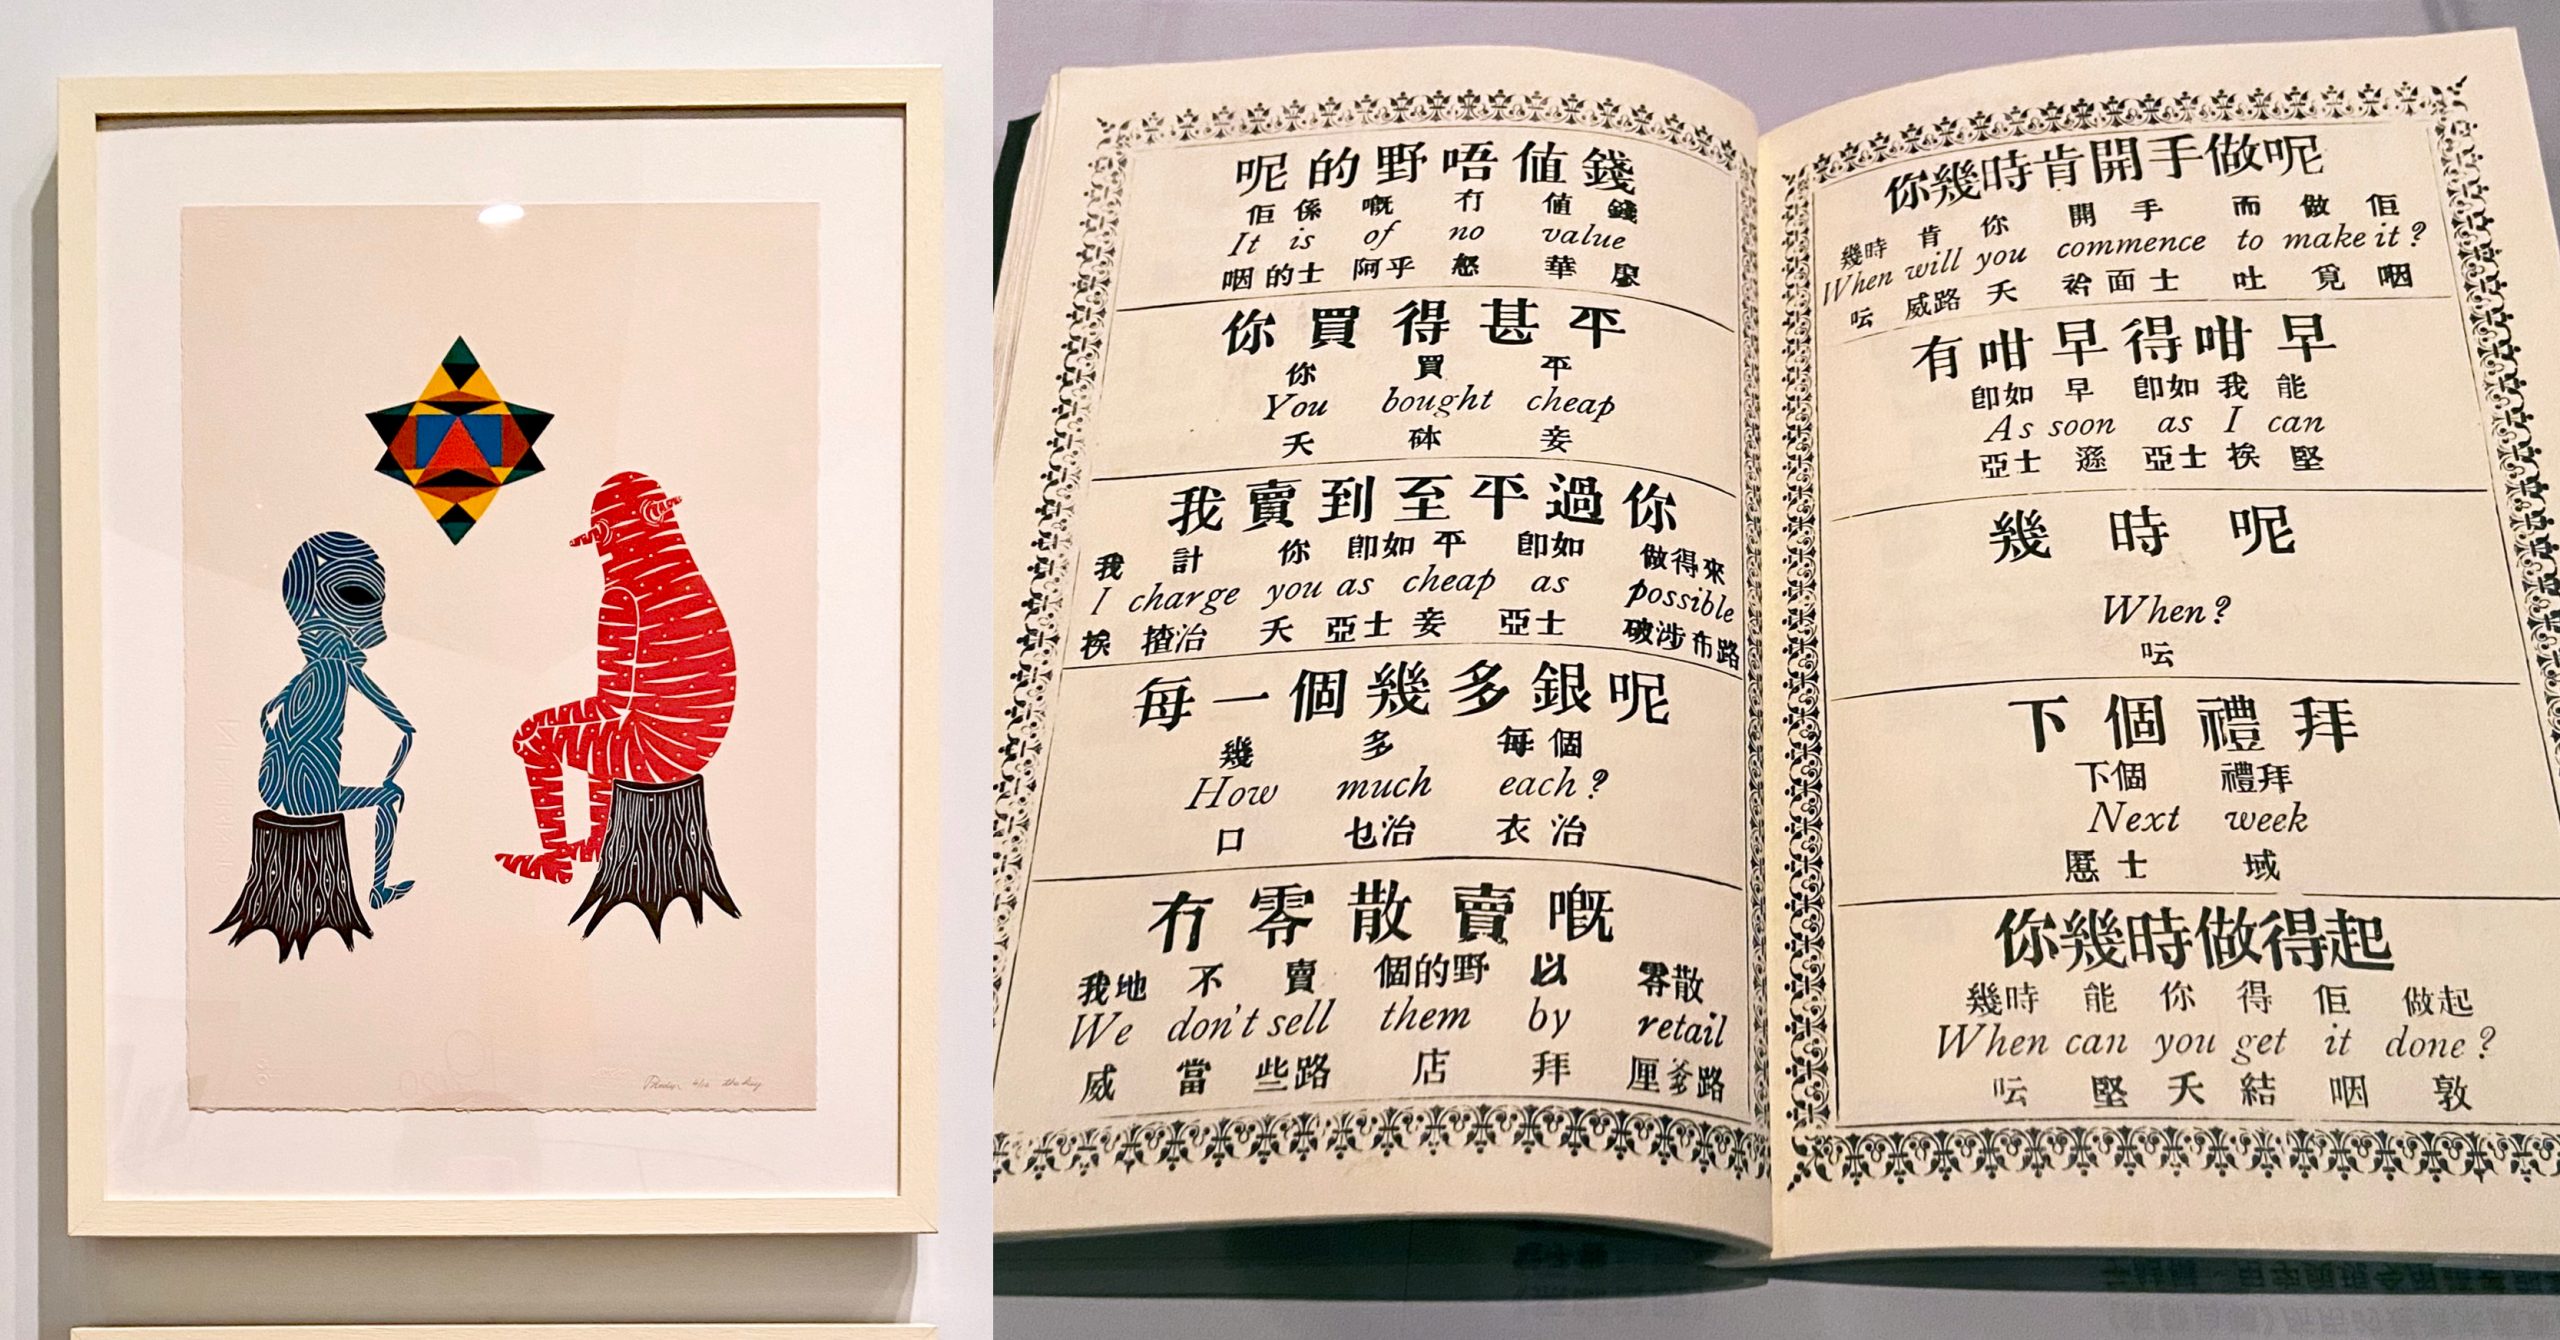 4/12
呢的野唔值錢
佢係嘅冇值錢
It is of no value
咽的士阿乎怒華
你買得甚平
你買平
You bought cheap
夭砵妾
我賣到至平過你
我計你即如平即如做得來
I charge you as cheap as possible
挨揸治夭亞士妾亞士破涉布路
每一個幾多銀呢
幾多每個
How much each?
口乜治衣治
冇零散賣嘅
我地不賣個的野以零散
We don't sell them by retail
威當些路店拜厘爹路
你幾時肯開手做呢
幾時肯你開手而做佢
When will you commence to make it?
呍威路夭袷面士吐覓咽
有咁早得咁早
即如早即如我能
As soon as I can
亞士遜亞士挨堅
幾時呢
When?
呍
下個禮拜
下個禮拜
Next week
士域
你幾時做得起
幾時能你得佢做起
When can you get it done?
呍堅夭結咽敦